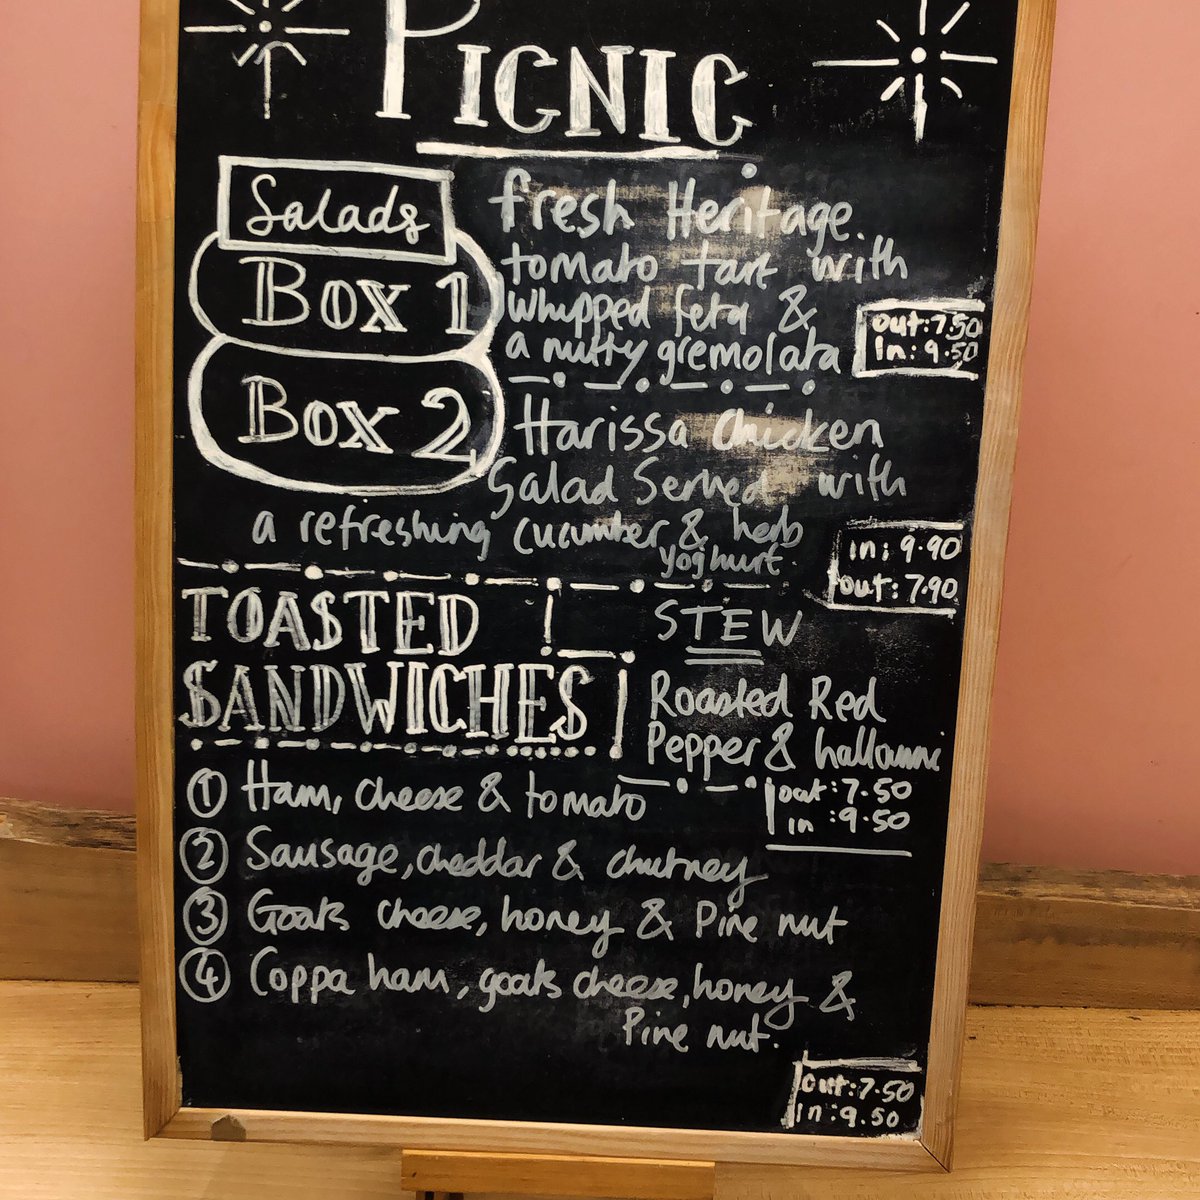 PICNIC
Salads
Box 1
fresh Heritage.
tomato tart with
whipped feta &
a nutty gremolata
out: 7.50
In: 9.50
Box 2
Harissa Chicken
Salad Served with
a refreshing cucumber & herb
yoghurt.
in: 9.90
out: 7.90
TOASTED
SANDWICHES
STEW
Roasted Red
Pepper & halloumi
out: 7.50
in: 9.50
1 Ham, cheese & tomato
2 Sausage, cheddar & chutney
3 Goats cheese, honey & Pine nut
4 Coppa ham, goats cheese, honey &
Pine nut.
out: 7.50
in: 9.50